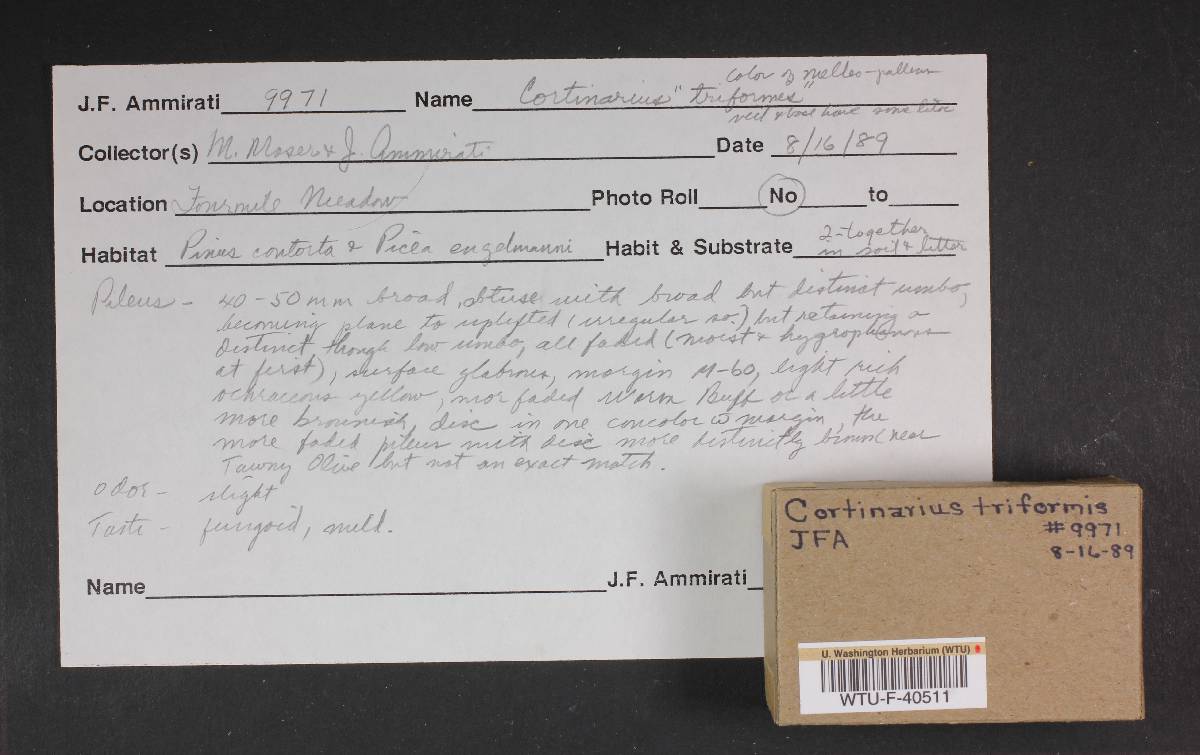 color of melleo-pallens
J.F. Ammirati 9971 Name Cortinarius "triformes"
veil & base have some lilac
Collector(s) M. Moser & J. Ammirati Date 8/16/89
Location Fourmile Meadow Photo Roll No to
Habitat Pinus contorta & Picea engelmanni Habit & Substrate 2-together in soil & litter
Pileus - 40-50 mm broad, obtuse with broad but distinct umbo,
becoming plane to uplifted (irregular so.) but retaining a
distinct though low umbo, all faded (moist & hygrophanous
at first), surface glabrous, margin M-60, light rich
ochraceous yellow, mor faded Warm Buff or a little
more brownish, disc in one concolor w margin, the
more faded pileus with disc more distinctly brown (near
Tawny Olive but not an exact match.
Odor - slight
Taste - fungoid, mild.
Name J.F. Ammirati
Cortinarius triformis
JFA #9971
8-16-89
U. Washington Herbarium (WTU)
WTU-F-40511